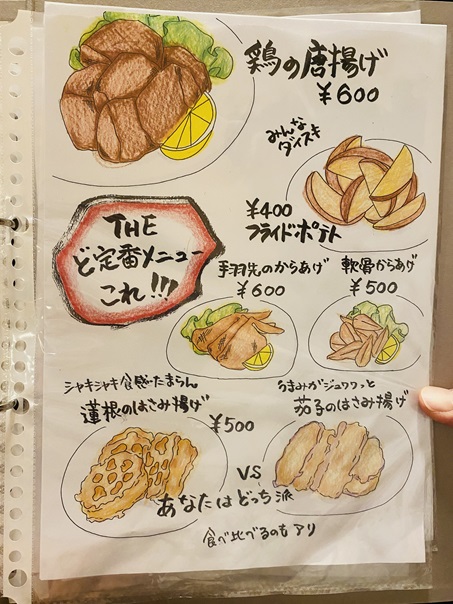 鶏の唐揚げ
¥600
みんな
ダイスキ
¥400
フライドポテト
THE
ど定番メニュー
これ!!!
手羽先のからあげ
¥600
軟骨からあげ
¥500
シャキシャキ食感・たまらん
蓮根のはさみ揚げ
¥500
うまみがジュワワッと
茄子のはさみ揚げ
VS
あなたはどっち派
食べ比べるのもアリ